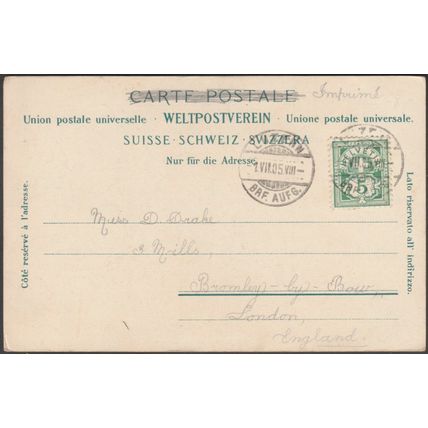 CARTE POSTALE Imprimé
Union postale universelle · WELTPOSTVEREIN · Unione postale universale.
SUISSE · SCHWEIZ · SVIZZERA
Nur für die Adresse.
LUZERN
1.VII.05.VIII
BRF. AUFG.
HELVETIA
5
Côté reservé à l'adresse.
Lato riservato all' indirizzo.
Miss D. Drake
3 Mills,
Bromley-by-Bow,
London,
England.